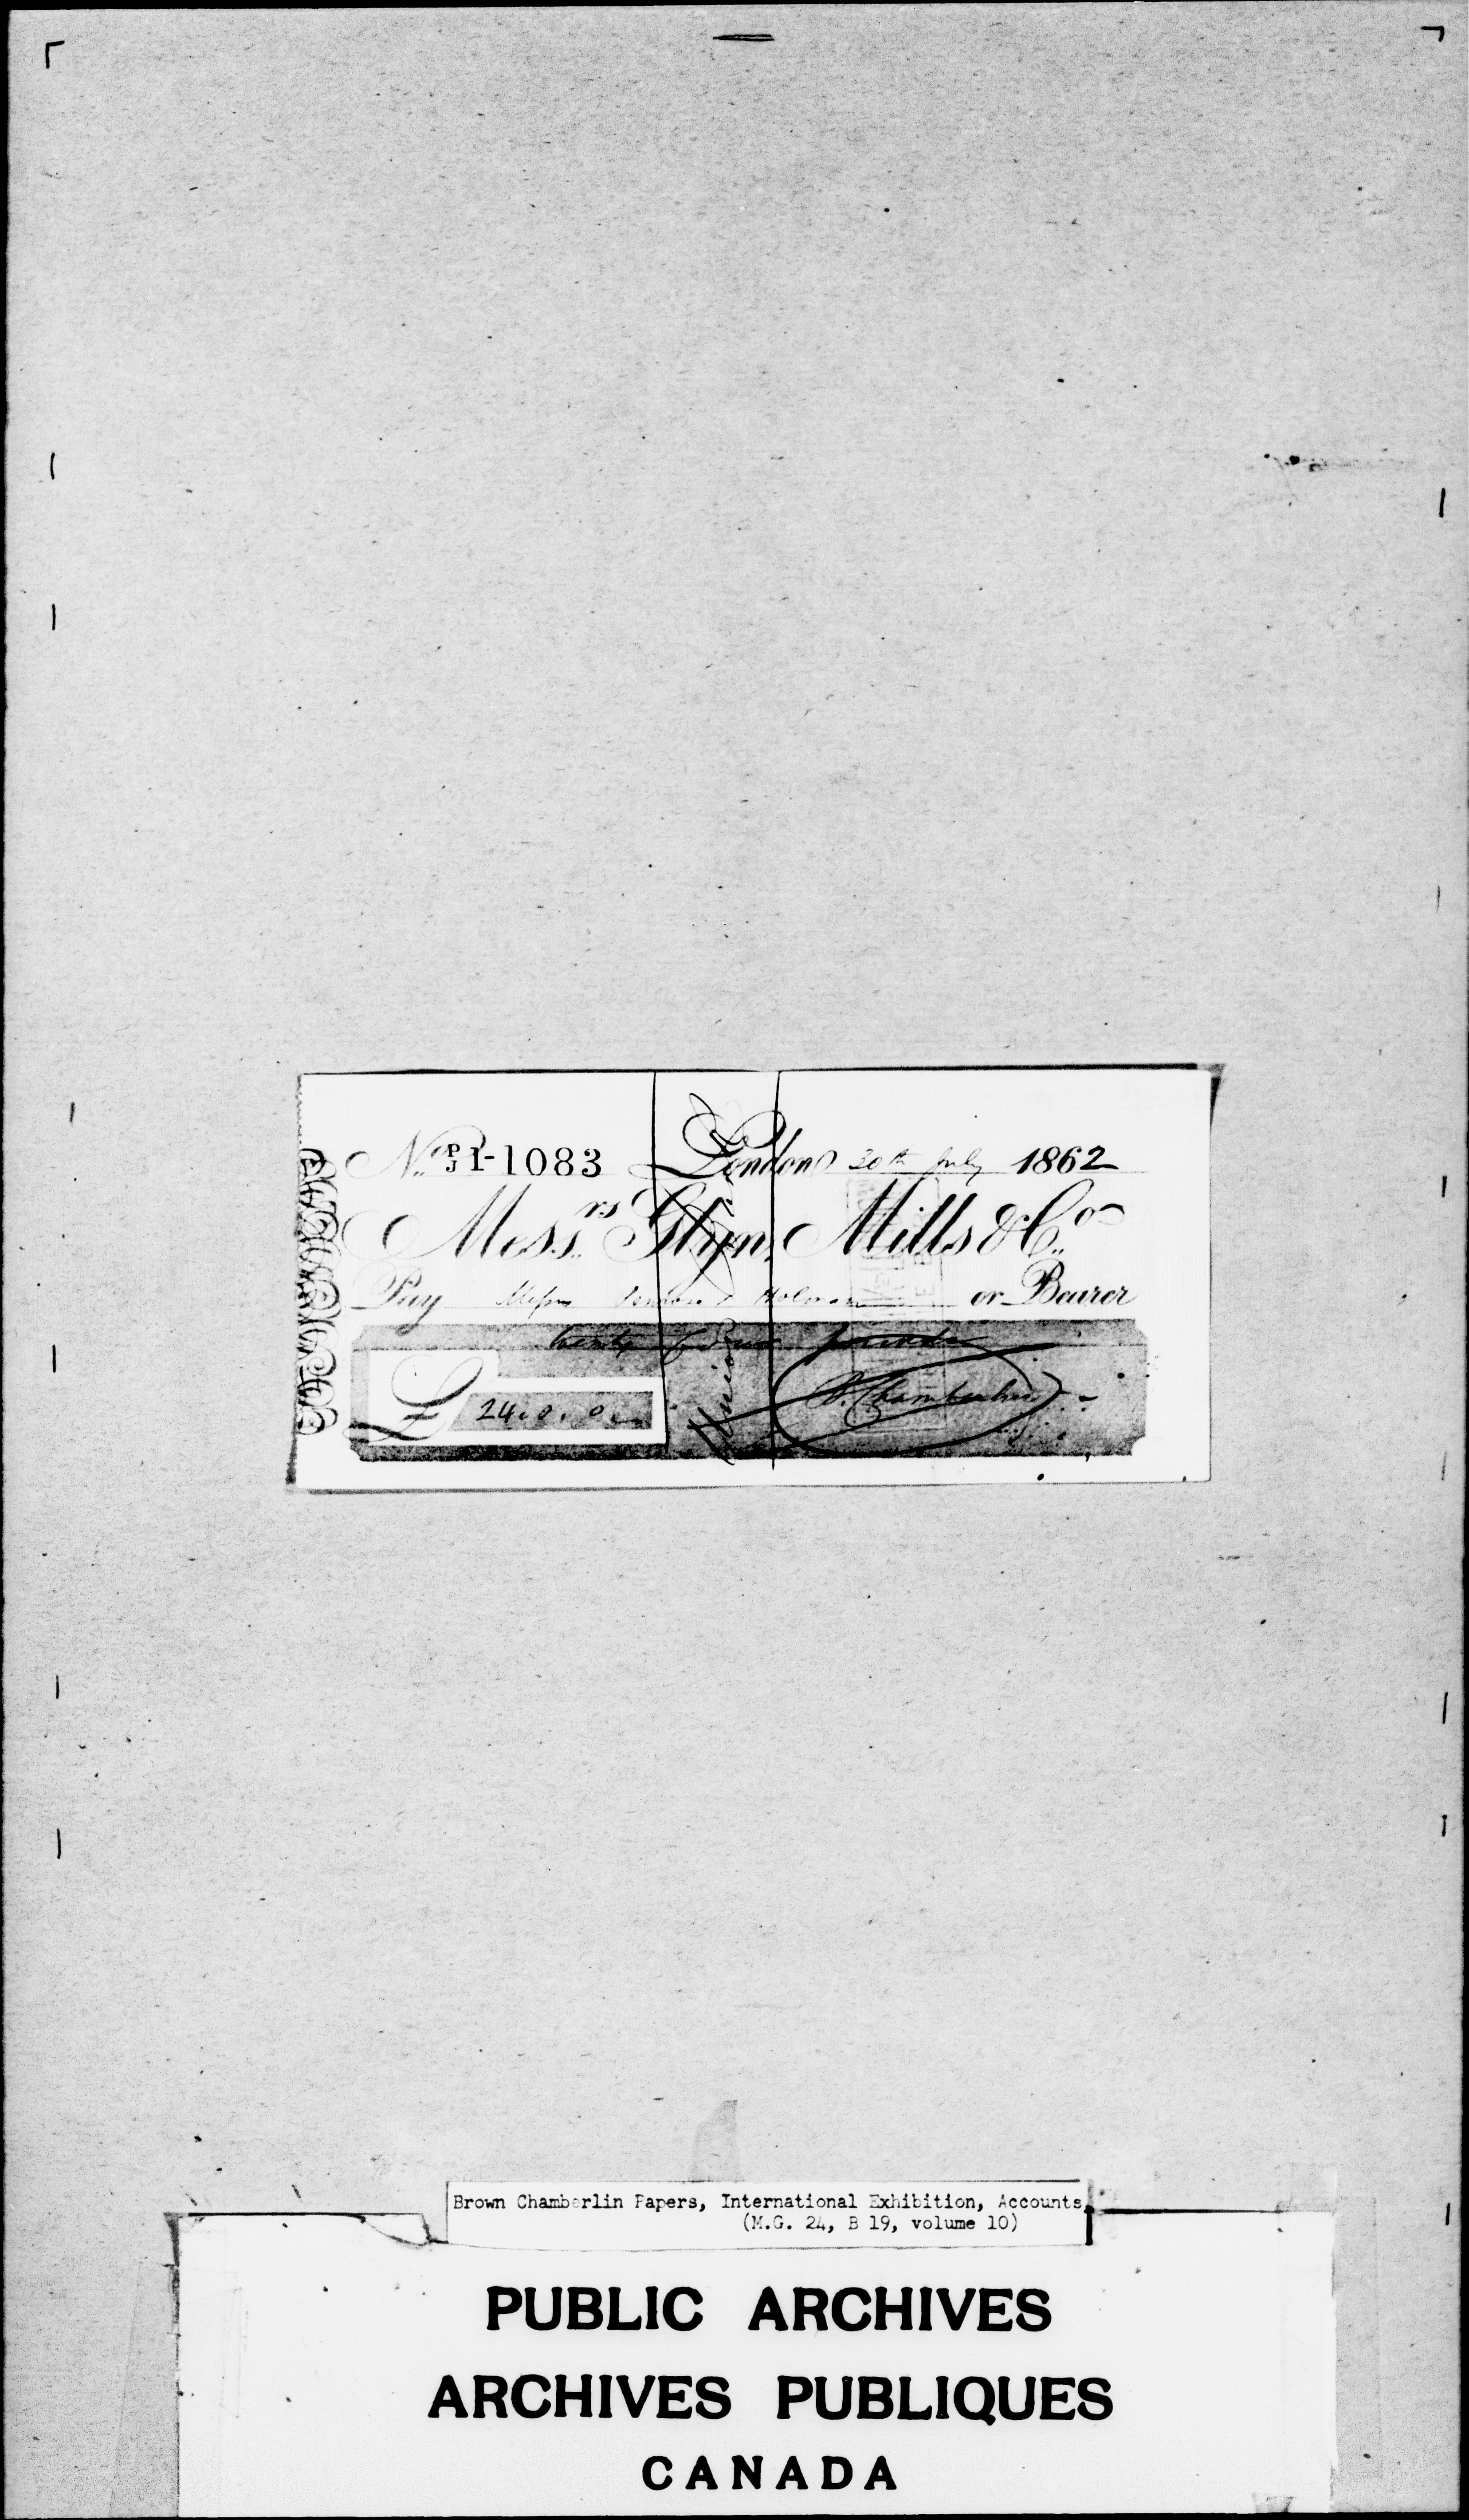 No. P/J 1-1083 London 30th July 1862
Mess.rs Glyn, Mills & Co.
Pay Messrs Holman or Bearer
twenty four pounds
£ 24. 0. 0
B. Chamberlin
Brown Chamberlin Papers, International Exhibition, Accounts,
(M.G. 24, B 19, volume 10)
PUBLIC ARCHIVES
ARCHIVES PUBLIQUES
CANADA